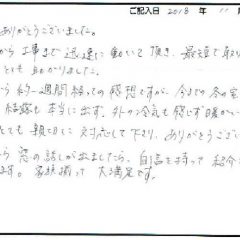 ご記入日 2018 年 11 月
ありがとうございました。
から工事まで迅速に動いて頂き、最短で取り
とても助かりました。
から約一週間経っての感想ですが、今までの冬の室
結露も本当に出ず、外の冷気も感じず暖かい
とても親切に対応して下さり、ありがとうござい
ら窓の話しが出ましたら、自信を持って紹介
ます。家族揃って大満足です。